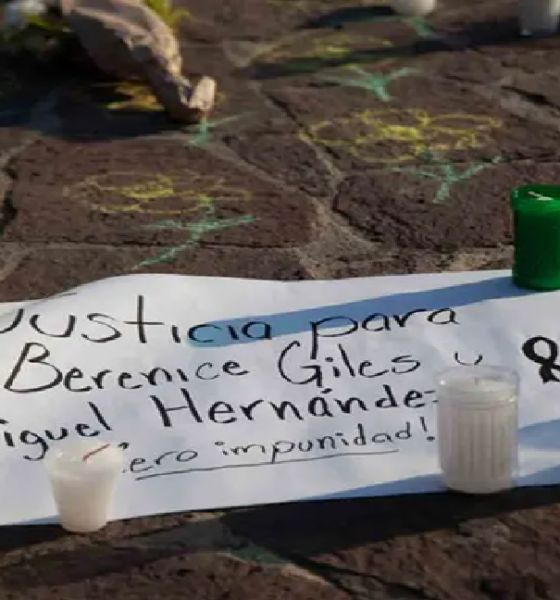 Justicia para
Berenice Giles y
iguel Hernánde
ero impunidad!